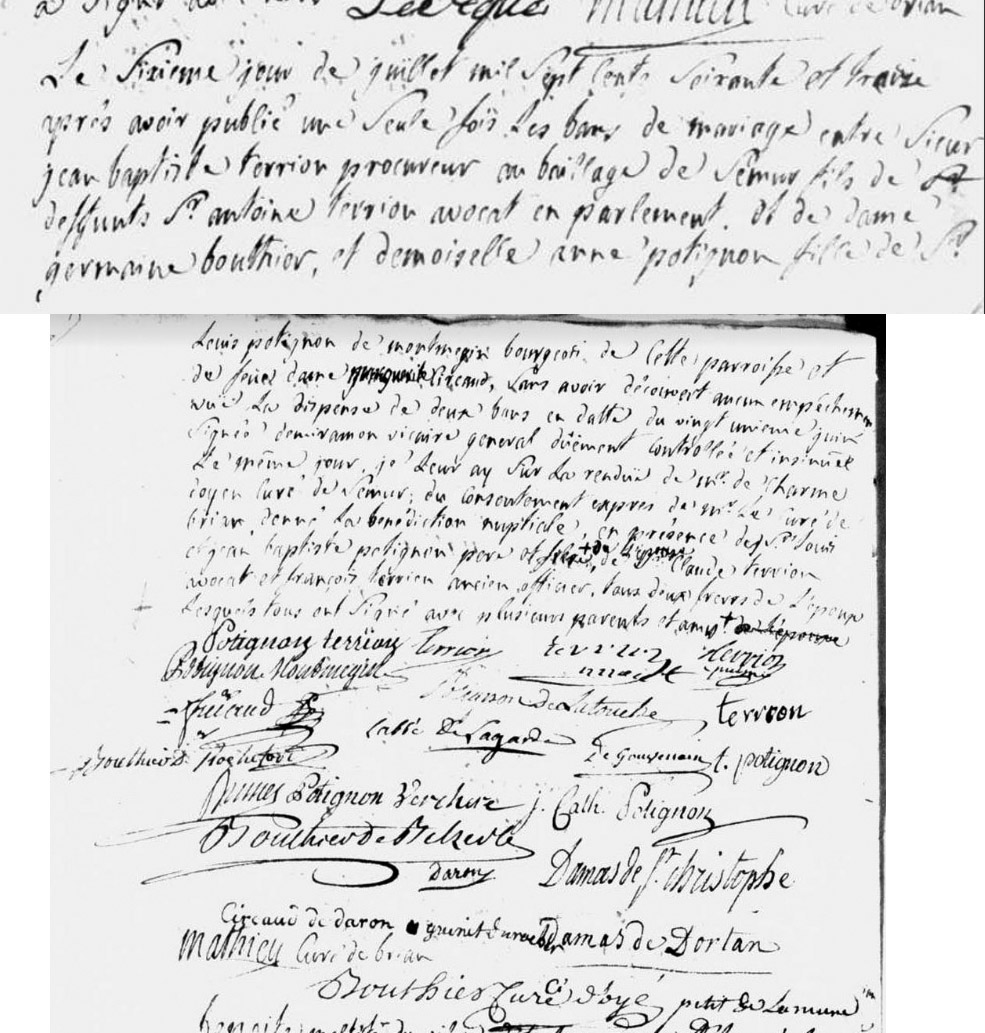 a signé
Le Sixieme jour de juillet mil Sept Cents Soixante et traize
après avoir publié une Seule fois Les bans de mariage entre Sieur
jean baptiste terrion procureur au baillage de Semur fils de
deffunts Sr. antoine terrion avocat en parlement, et de dame
germaine bouthier, et demoiselle anne potignon fille de Sr.
Louis potignon de montmegin bourgeois de Cette parroisse et
de feüe dame Circaud, Sans avoir découvert aucun empêchement
vüe La dispense de deux bans en datte du vingt unieme juin
Signée demiramon vicaire general düement Controllée et insinuée
Le même jour, je Leur ay Sur La renduë de mr. de Charme
doyen Curé de Semur, du Consentement exprès de mr. Le Curé de
brian donné La benediction nuptiale, en présence de Sr. Louis
et jean baptiste potignon pere et de Claude terrion
avocat et françois terrion ancien officier, tous deux freres de L'epoux
Lesquels tous ont Signé avec plusieurs parents et amys de L'epouse
Potignon terrion terrion terrion terrion
Potignon Montmegin
Circaud de Latouche terrion
L'abbé De Lagarde
Bouthier de Rochefort De Gouvenain t. potignon
Potignon Verchere j. Cath. Potignon
Bouthier de
daron Damas de St. christophe
Circaud de daron Damas de Dortan
Mathieu Curé de brian
Bouthier Curé d'oyé petit de Lamure